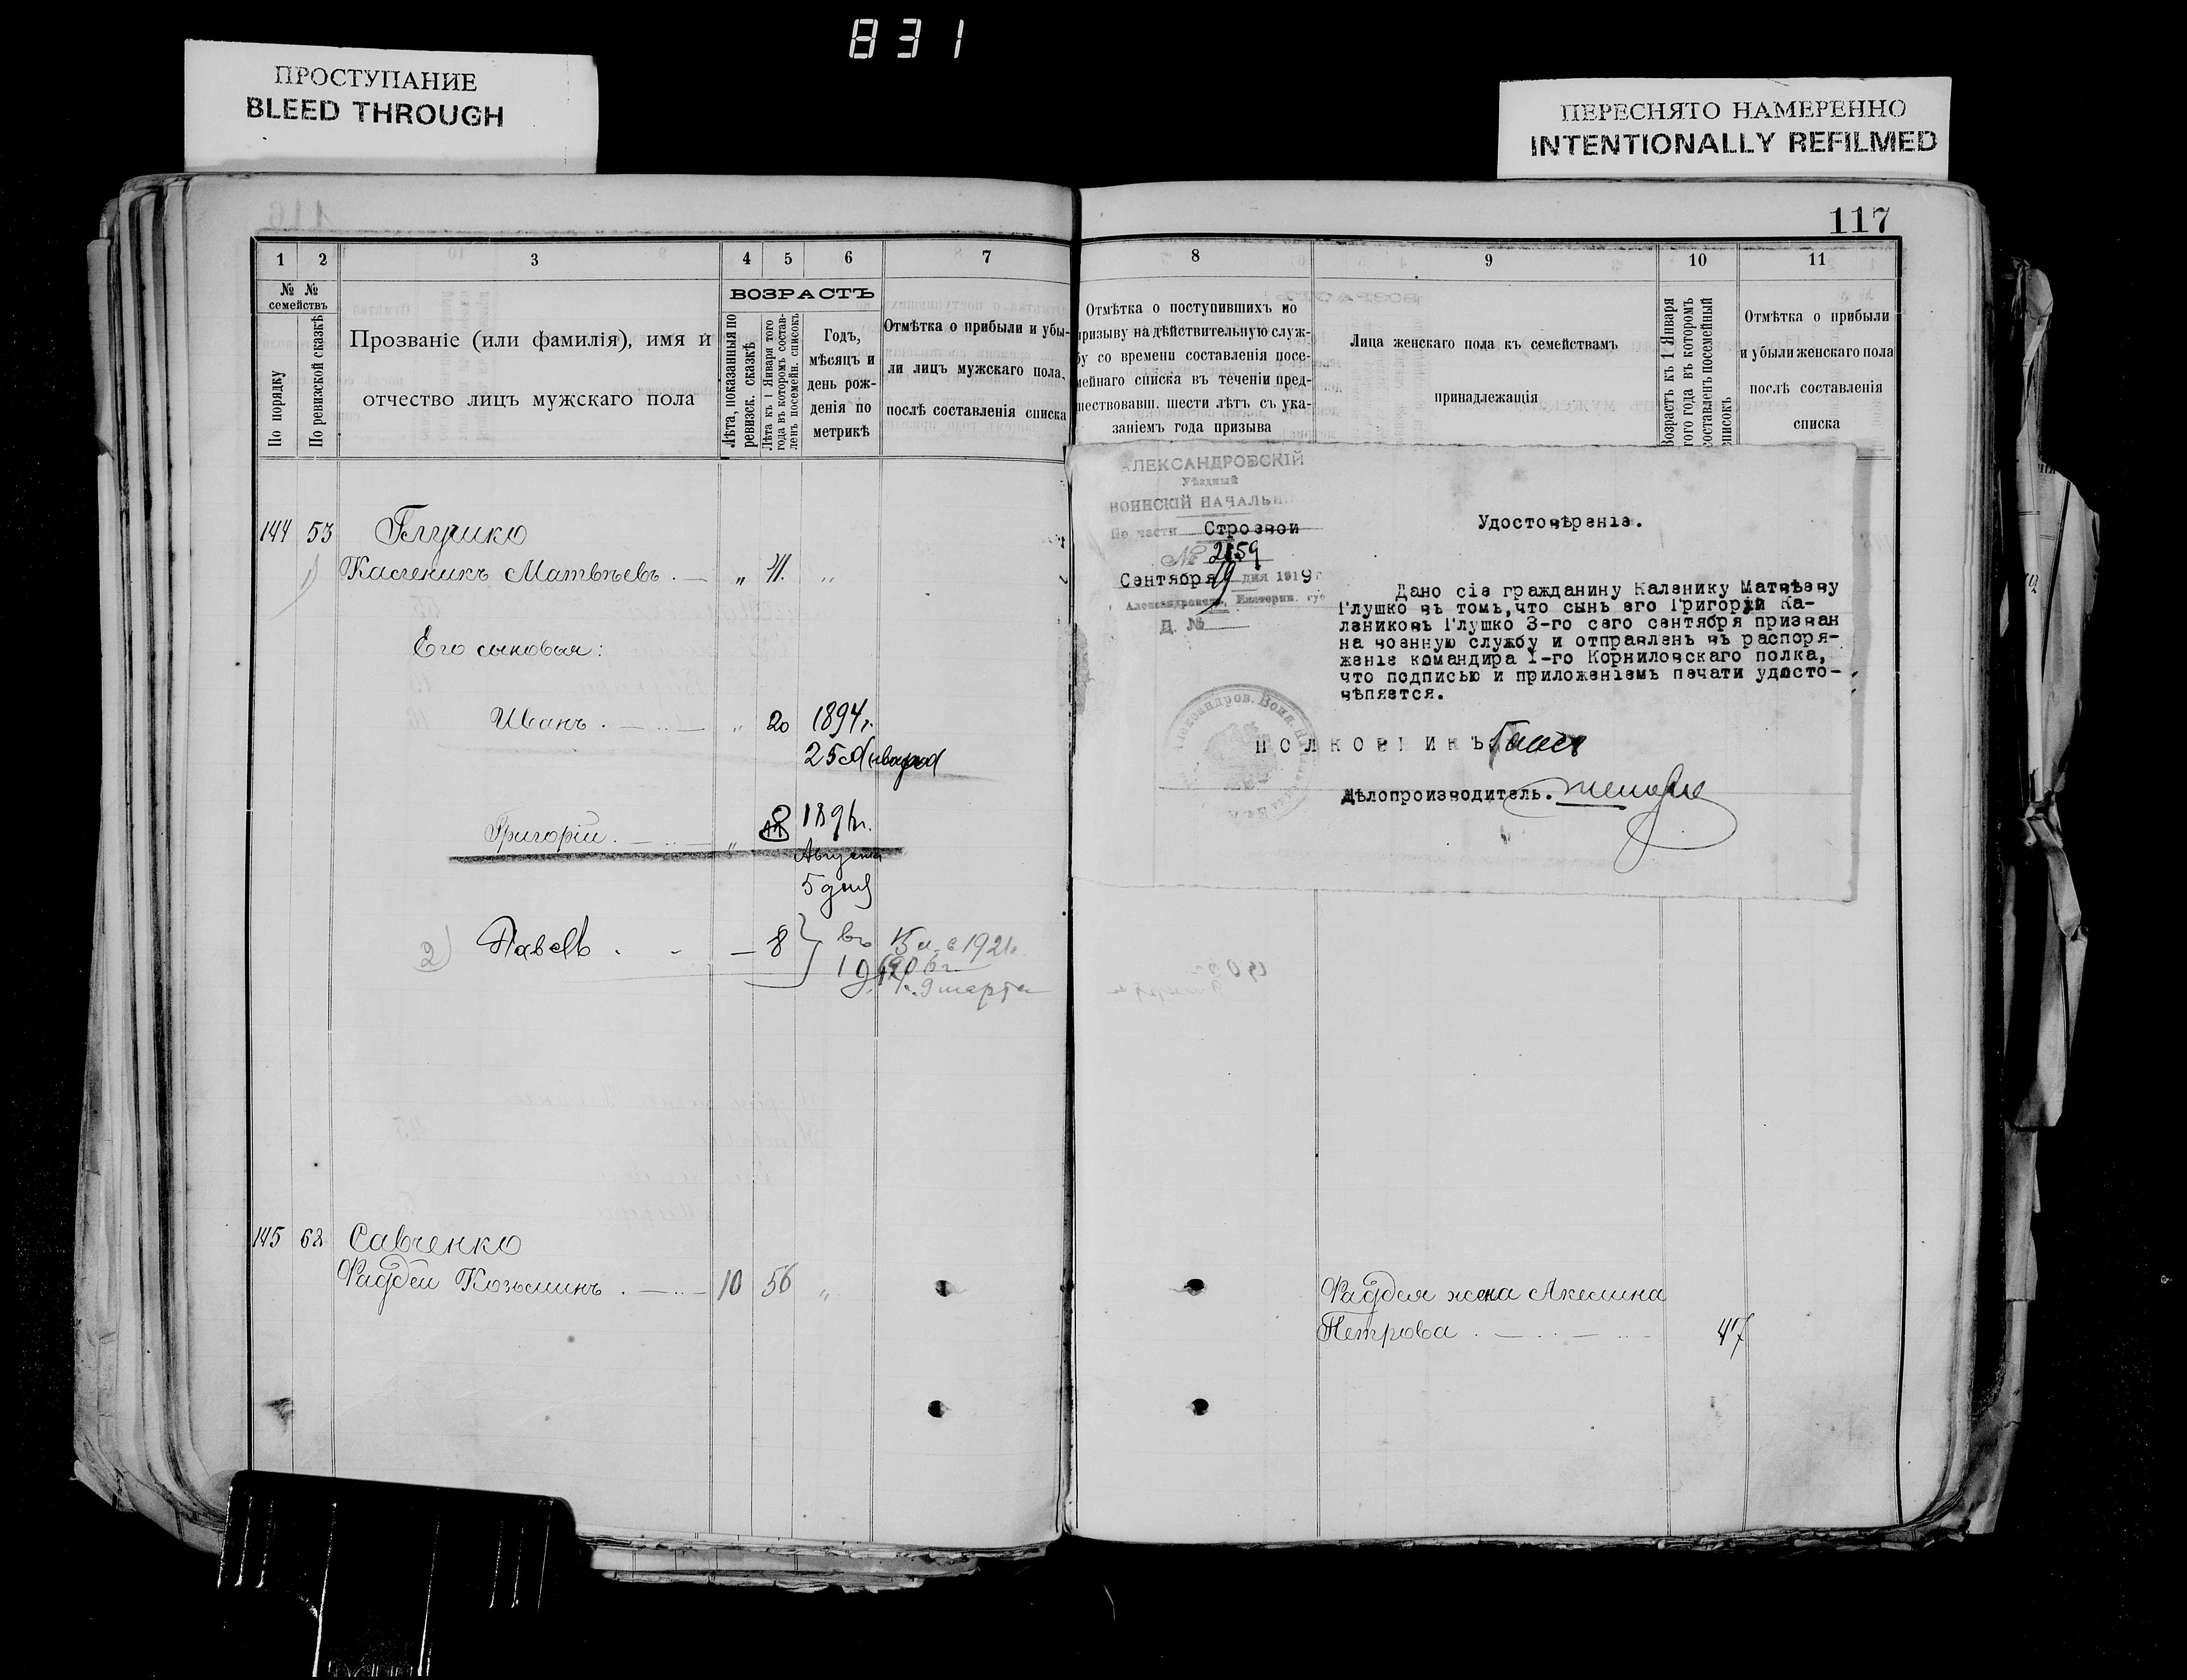 831
ПРОСТУПАНИЕ
BLEED THROUGH
ПЕРЕСНЯТО НАМЕРЕННО
INTENTIONALLY REFILMED
117
1 2 3 4 5 6 7
№ №
семействъ
По порядку
По ревизской сказкѣ
Прозваніе (или фамилія), имя и
отчество лицъ мужскаго пола
ВОЗРАСТЪ
Лѣта, показанныя по
ревизск. сказкѣ
Лѣта къ 1 Января того
года въ которомъ состав-
ленъ посемейн. списокъ
Годъ,
мѣсяцъ и
день рож-
денія по
метрикѣ
Отмѣтка о прибыли и убы-
ли лицъ мужскаго пола,
послѣ составленія списка
144 53 Глушко
Каленикъ Матвѣевъ . — „ „
Его сыновья:
Иванъ . — .. — „ 20 1894 г.
25 Января
Григорій . — .. — „
Августа
5 дня
2) Павелъ . - — 8 въ
1921
1906 г.
9 марта
145 62 Савченко
Фаддей Козьминъ . — .. — 10 56 „
8 9 10 11
Отмѣтка о поступившихъ по
призыву на дѣйствительную служ-
бу со времени составленія посе-
мейнаго списка въ теченіи пред-
шествовавш. шести лѣтъ съ ука-
заніемъ года призыва
Лица женскаго пола къ семействамъ
принадлежащія
Возрастъ къ 1 Января
того года въ которомъ
составленъ посемейный
списокъ
Отмѣтка о прибыли
и убыли женскаго пола
послѣ составленія
списка
АЛЕКСАНДРОВСКІЙ
Уѣздный
ВОИНСКІЙ НАЧАЛЬН
По части Строевой
№ 2159
Сентября 19 дня 1919 г
Александровскъ, Екатерин. губ
Д. №
Удостовѣреніе.
Дано сіе гражданину Каленику Матвѣеву
Глушко въ томъ,что сынъ его Григорій Ка-
лениковъ Глушко 3-го сего сентября призван
на военную службу и отправленъ въ распоря-
женіе командира 1-го Корниловскаго полка,
что подписью и приложеніемъ печати удосто-
вѣряется.
ПОЛКОВНИКЪ
Дѣлопроизводитель.
Фаддея жена Акилина
Петрова . — .. — .. — 47